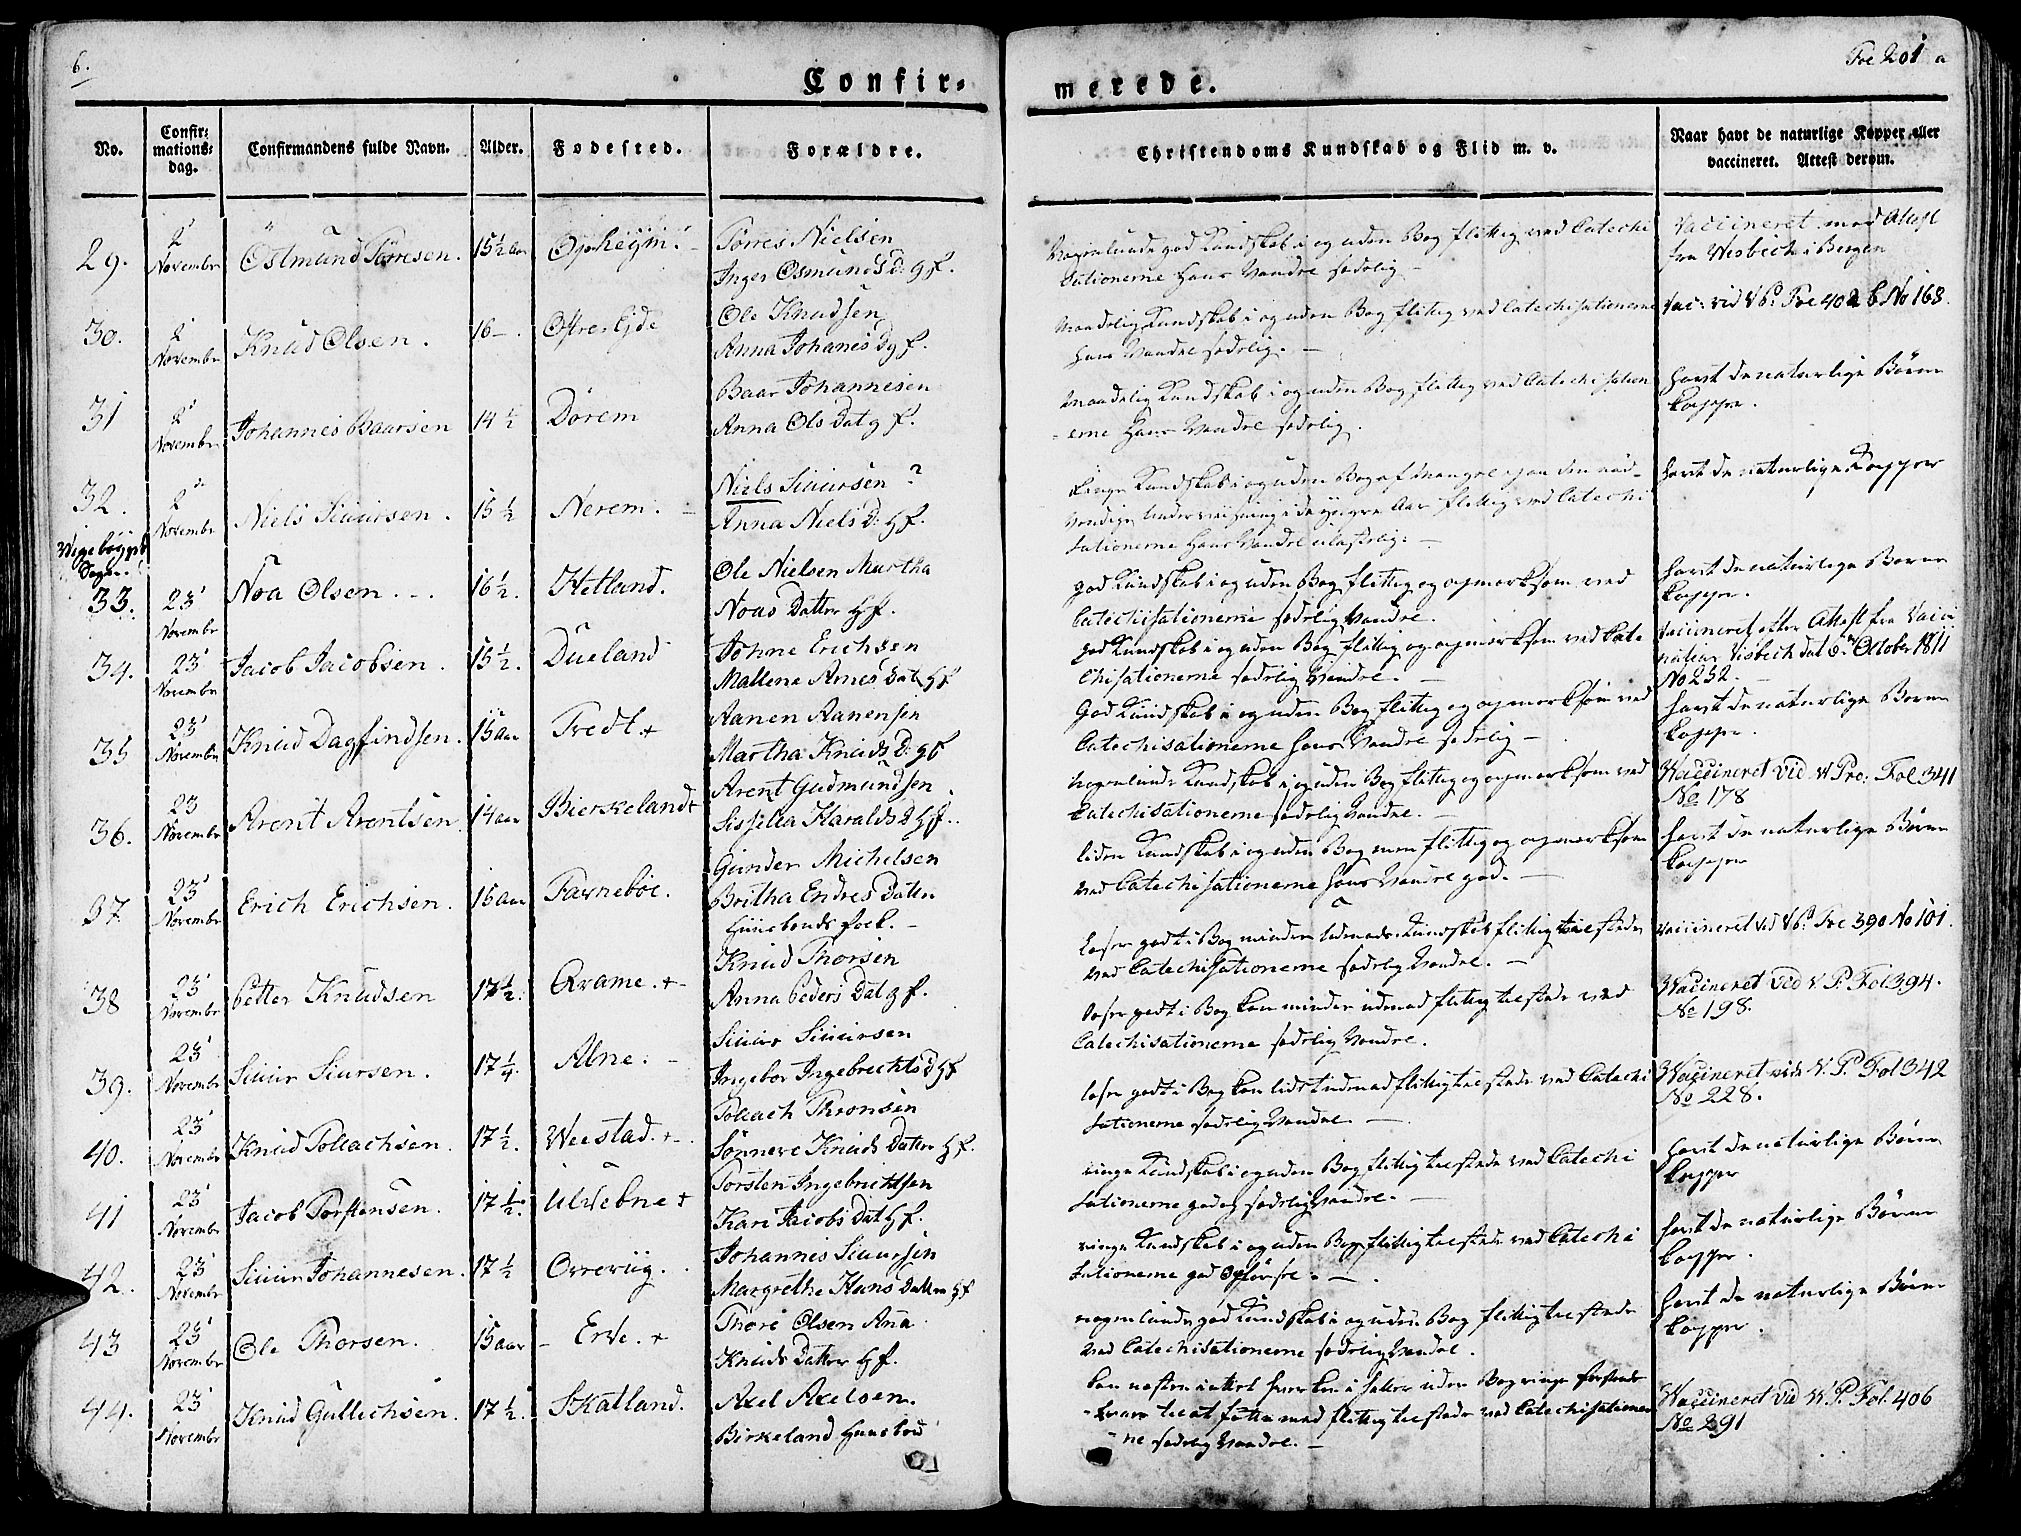 6.
Confir=
merede.
Foe 201 a
No.
Confir:
mations:
dag.
Confirmandens fulde Navn.
Alder.
Fodested.
Forældre.
Christendoms Kundskab og Flid m. v.
Naar havt de naturlige Kopper eller
vaccineret. Attest derom.
29.
2
Novembr
Östmund Törresen.
15½ aar
Opheÿm
Törres Nielsen
Inger Osmunds D: g f.
Nogenlunde god Kundskab i og uden Bog flittig ved Catechi
sationerne hans Vandre sædelig
Vacineret med Attest
fra Wesbech i Bergen
30.
2
Novembr
Knud Olsen.
16 –
Ole Knudsen
Anna Johanis D g f.
Maadelig Kundskab i og uden Bog flittig ved Catechisationerne
hans Vandre sædelig.
Vac: vid V P. Foe 402 b No 168.
31
2
Novembr
Johannes Baarsen
14½
Dörem
Baar Johannesen
Anna Ols Dat g f.
Maadelig Kundskab i og uden Bog flittig ved Catechisation
erne hans Vandre sædelig.
havt de naturlige Börne
kopper.
32.
2
Novembr
Niels Siuursen.
15½
Nerem.
Niels Siuursen ?
Anna Niels D: H f.
ringe Kundskab i og uden Bog af Mangel paa den nød-
vendige Underviisning i de yngre Aar flittig ved Catechi
sationerne hans Vandre
havt de naturlige Kopper
Sogn.
33.
23
Novembr
Noa Olsen.
16½.
Hetland.
Ole Nielsen Martha
Noas Datter H f.
god Kundskab i og uden Bog flittig og opmerksom ved
Catechisationerne sædelig Vandre.
havt de naturlige Börne
kopper.
34.
23
Novembr
Jacob Jacobsen.
15½.
Dueland
Johne Erichsen
Mallene Arnes Dat H f
god Kundskab i og uden Bog flittig og opmerksom ved Cate
chisationerne sædelig Vandre.
Vacineret efter Attest fra Vacci
nateur Visbech dat 6 October 1811
No 252.
35
23
Novembr
Knud Dagfindsen.
15 aar
Tredt +
Aanen Aanensen
Martha Knuds D: g f
God Kundskab i og uden Bog flittig og opmerksom ved
Catechisationerne hans Vandre sædelig
havt de naturlige Börne
kopper.
36.
23
Novembr
Arent Arentsen
14 aar
Bierkeland +
Arent Gudmundsen
Sissella Haralds D H f.
nogenlunde Kundskab i og uden Bog flittig og opmerksom ved
Catechisationerne sædelig Vandre.
Vaccineret vid V Pro: Fol 341
No 178
37.
23
Novembr
Erich Erichsen.
15 aar
Farneböe.
Gunder Michelsen
Britha Endres Datter
Huusbonds folk.
liden Kundskab i og uden Bog men flittig og opmerksom
ved Catechisationerne hans Vandre god.
havt de naturlige Börne
kopper
38
23
Novembr
Petter Knudsen
17½.
Qvame. +
Knud Thorsen
Anna Peders Dat g f.
læser godt i Bog minder udenads Kundskab flittig tilstede
ved Catechisationerne sædelig Vandre.
Vaccineret vid V P. Foe 390 No 101.
39.
23
Novembr
Siuur Siursen.
17¼
Alne.
Siuur Siuursen
Ingebor Ingebrechts d H f
læser godt i Bog kan minder udenad flittig tilstede ved
Catechisationerne sædelig Vandre.
Vaccineret vid V. P. Fol 394.
No 198.
40.
23
Novembr
Knud Tollachsen.
17½.
Weestad. +
Tollach Thronsen
Sönneve Knuds Datter H f.
læser godt i Bog kan lidet udenad flittig tilstede ved Catechi
sationerne sædelig Vandre
Vaccineret vid V. P. Fol 342
No 228.
41
23
Novembr
Jacob Torstensen.
17½.
Ulvebne +
Torsten Ingebrichtsen
Kari Jacobs Dat H f.
ringe Kundskab i og uden Bog flittig tilstede ved Catechi
sationerne god og sædelig Vandre.
havt de naturlige Börne
kopper
42.
23
Novembr
Siuur Johannesen.
17½
Orreviig.
Johannes Siuursen
Margrethe Hans Datter H f
ringe Kundskab i og uden Bog flittig tilstede ved Catechi
sationerne god Opførsel.
havt de naturlige Börne
kopper.
43
23
Novembr
Ole Thorsen.
15 aar
Erve. +
Thore Olsen Ana
Knuds Datter H f.
nogenlunde god Kundskab i og uden Bog flittig tilstede
ved Catechisationerne sædelig Vandre.
havt de naturlige Börne
kopper.
44.
23
Novembr
Knud Gullichsen.
17½.
Skatland.
Axel Axelsen.
Birkeland Huusbond
kan næsten intet hverken i heller uden Bog ringe
flittig tilstede ved Catechisationer
ne sædelig Vandre.
Vaccineret vid V. P. Fol. 406
No 291